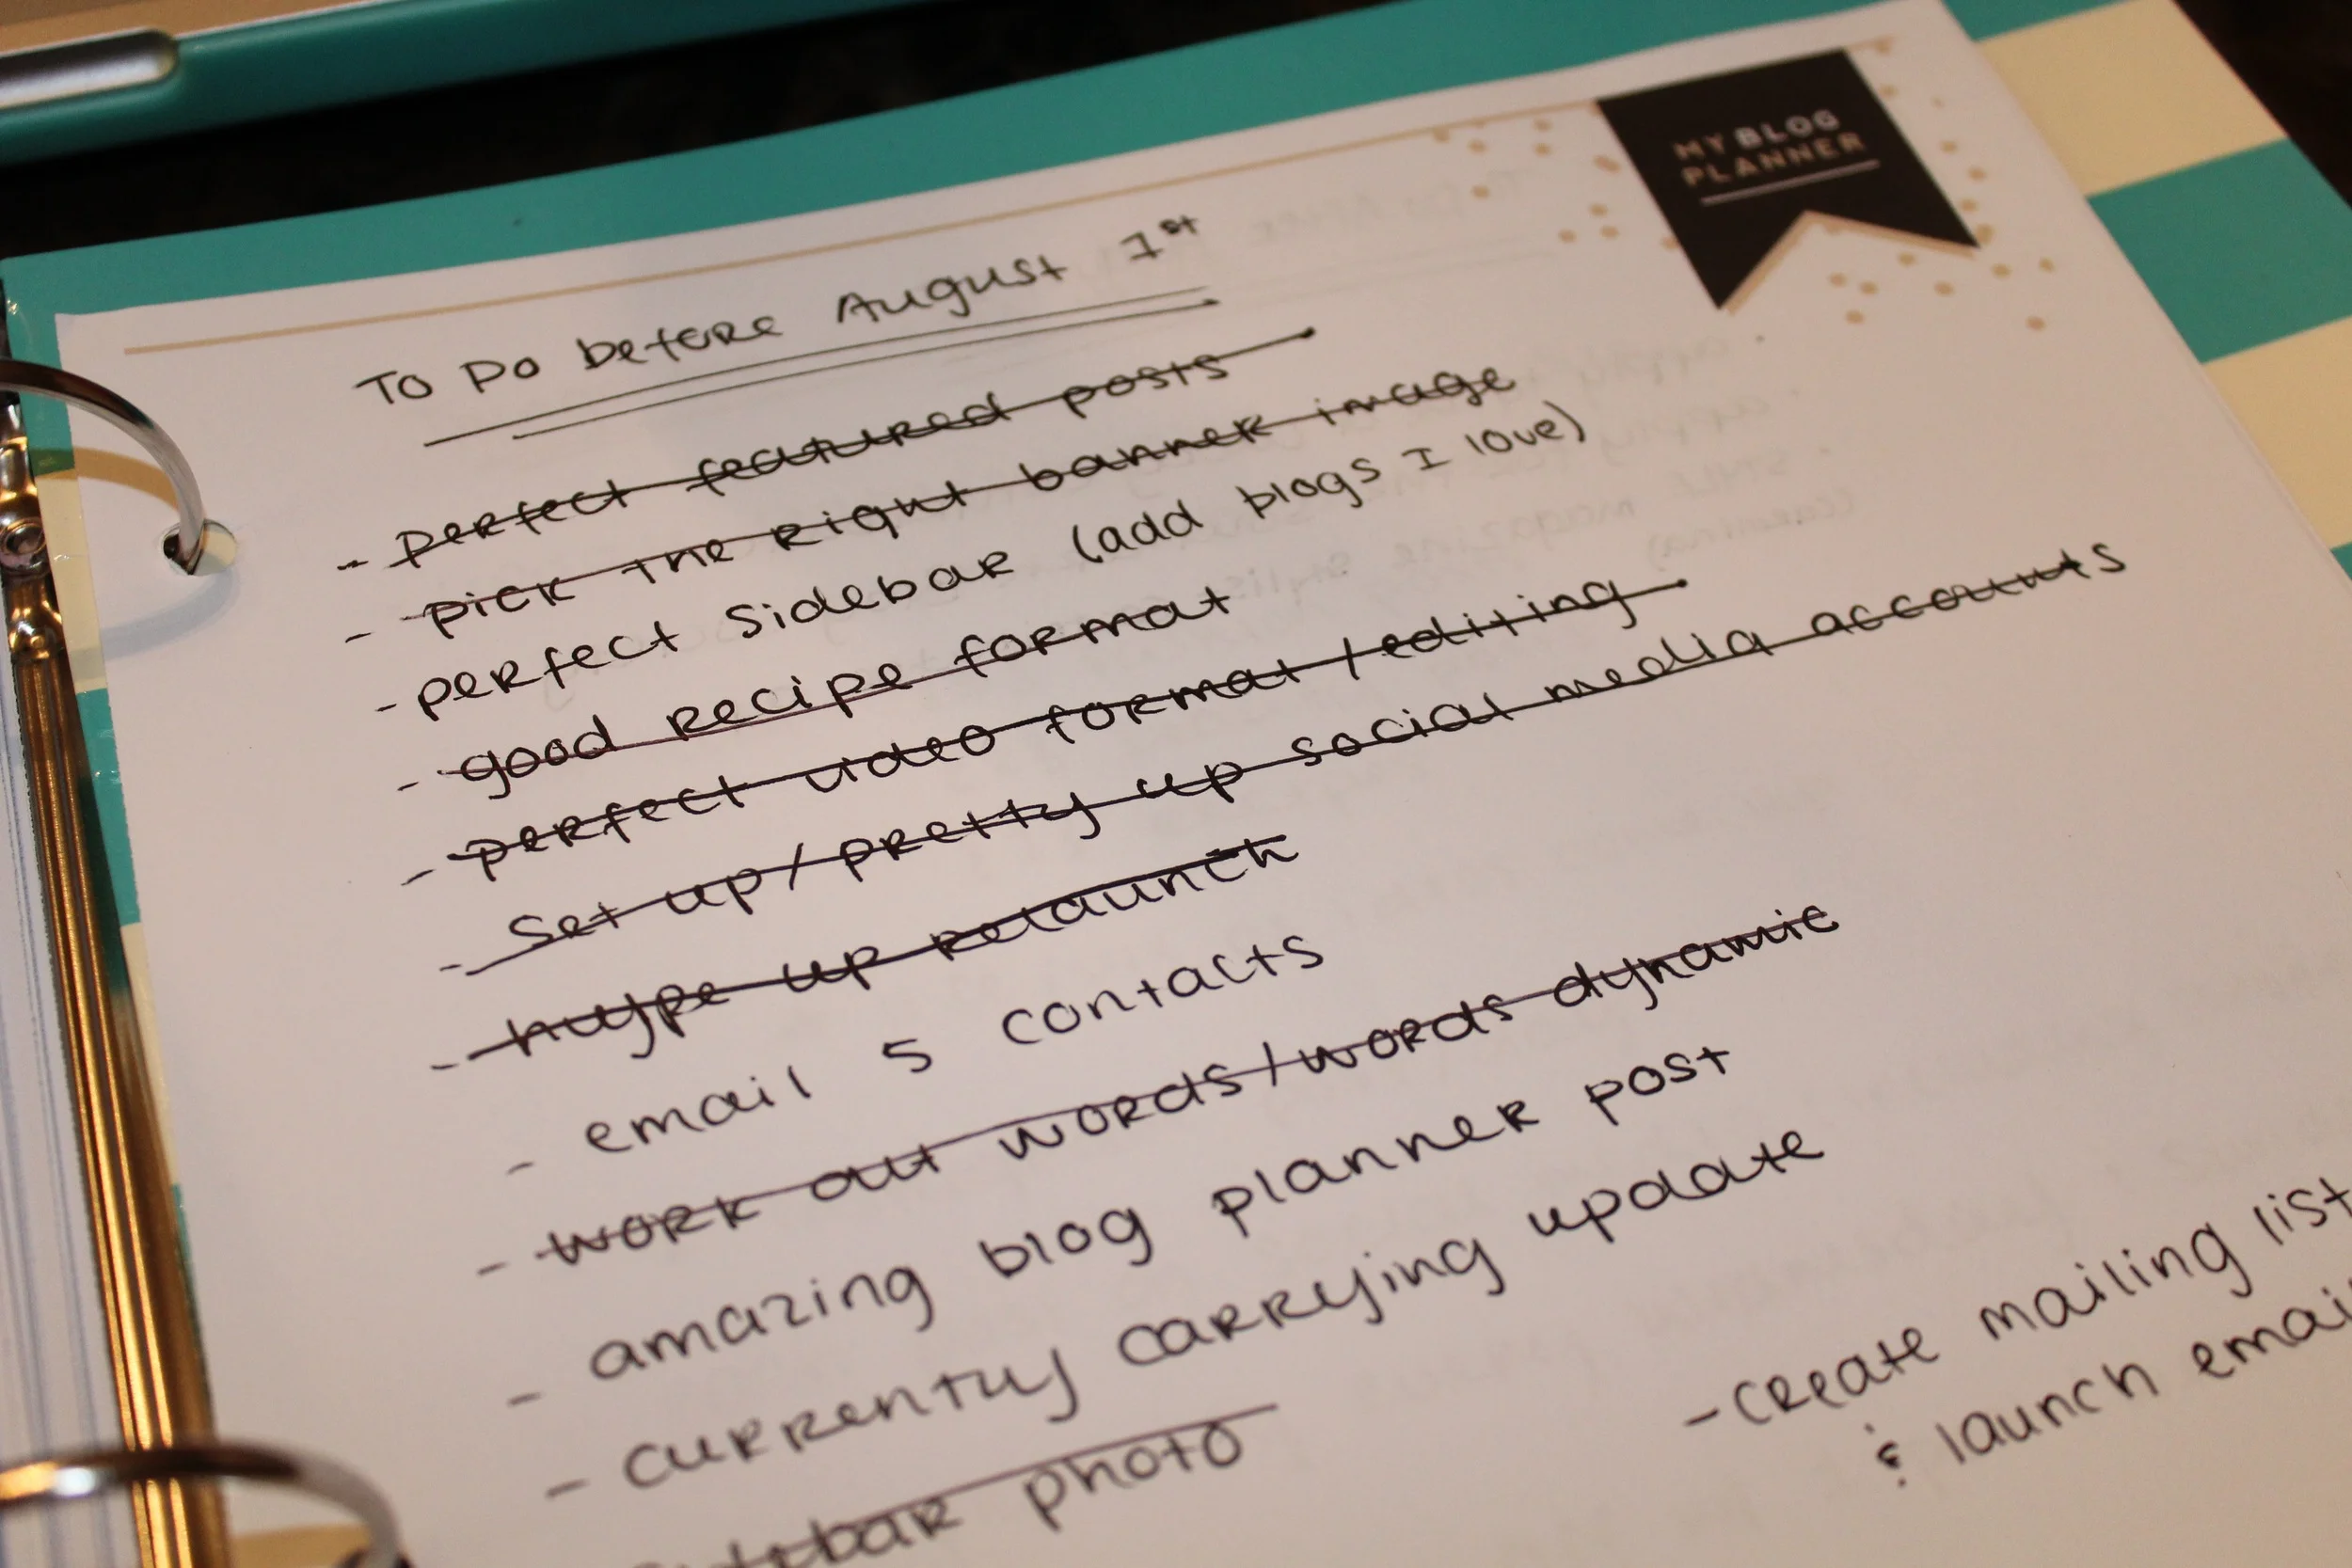 MY BLOG
PLANNER
To Do before August 1st
- perfect featured posts
- pick the right banner image
- perfect sidebar (add blogs I love)
- good recipe format
- perfect video format / editing
- set up / pretty up social media accounts
- hype up relaunch
- email 5 contacts
- work out words / words dynamic
- amazing blog planner post
- currently carrying update
photo
- create mailing list
& launch email